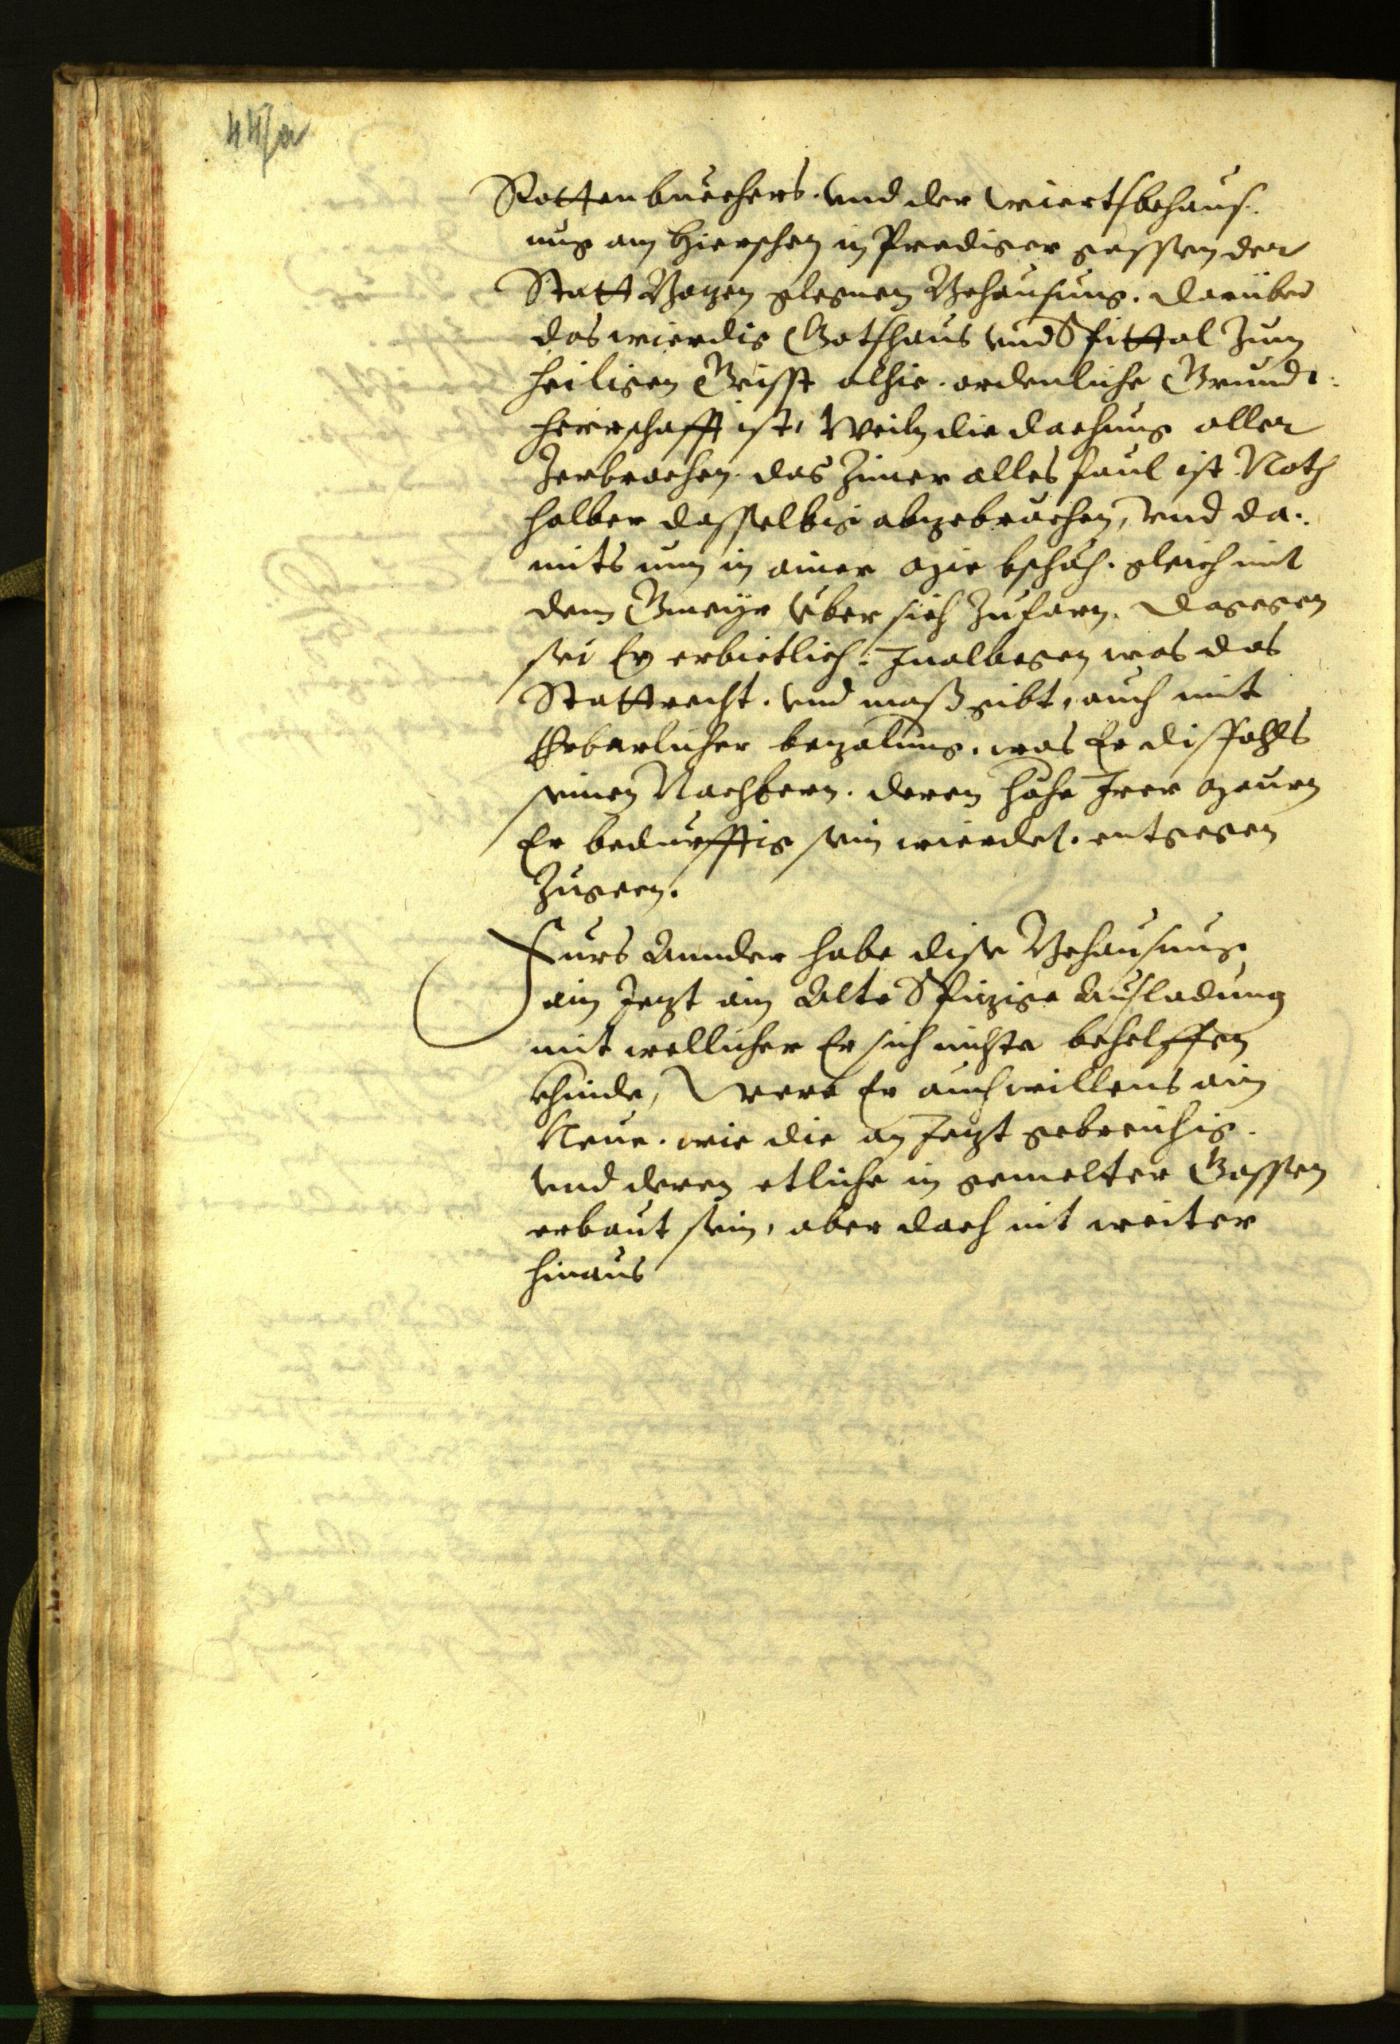 Rottenbuechers. vnd der wiertsbehaus-
ung am Hierschen in Prediger gassen der
Statt Bozen glegnen Behausung. darüber
das wierdig Gotshaus vnd Spittal Zum
heiligen Geisst alhie. ordenliche Grundt-
herrschafft ist, Weiln die dachung aller
Zerbrochen. das Zimer alles faul ist Noth
halber dasselbig abzebrechen, vnd da-
mits nun in ainer beschäch. gleich mit
dem Gmeyr über sich Zufarn. dagegen
sei Er erbietlich. Inalwegen was das
Stattrecht. vnd maß gibt, auch mit
Erbarlicher bezalung. was Er dissfahls
seinen Nachbern. deren höhe Irer
Er bedurfftig sein wierdet. entgegen
Zugeen.
Furs Annder habe dise Behausung
ain Jezt ain Alte Spizige Ausladung
mit wellicher Er sich nichts behelffen
khinde, Were Er auch willens ain
Neue. wie die an Jezt gebreichig.
vnd deren etliche in gemelter Gassen
erbaut sein, aber doch nit weiter
hinaus